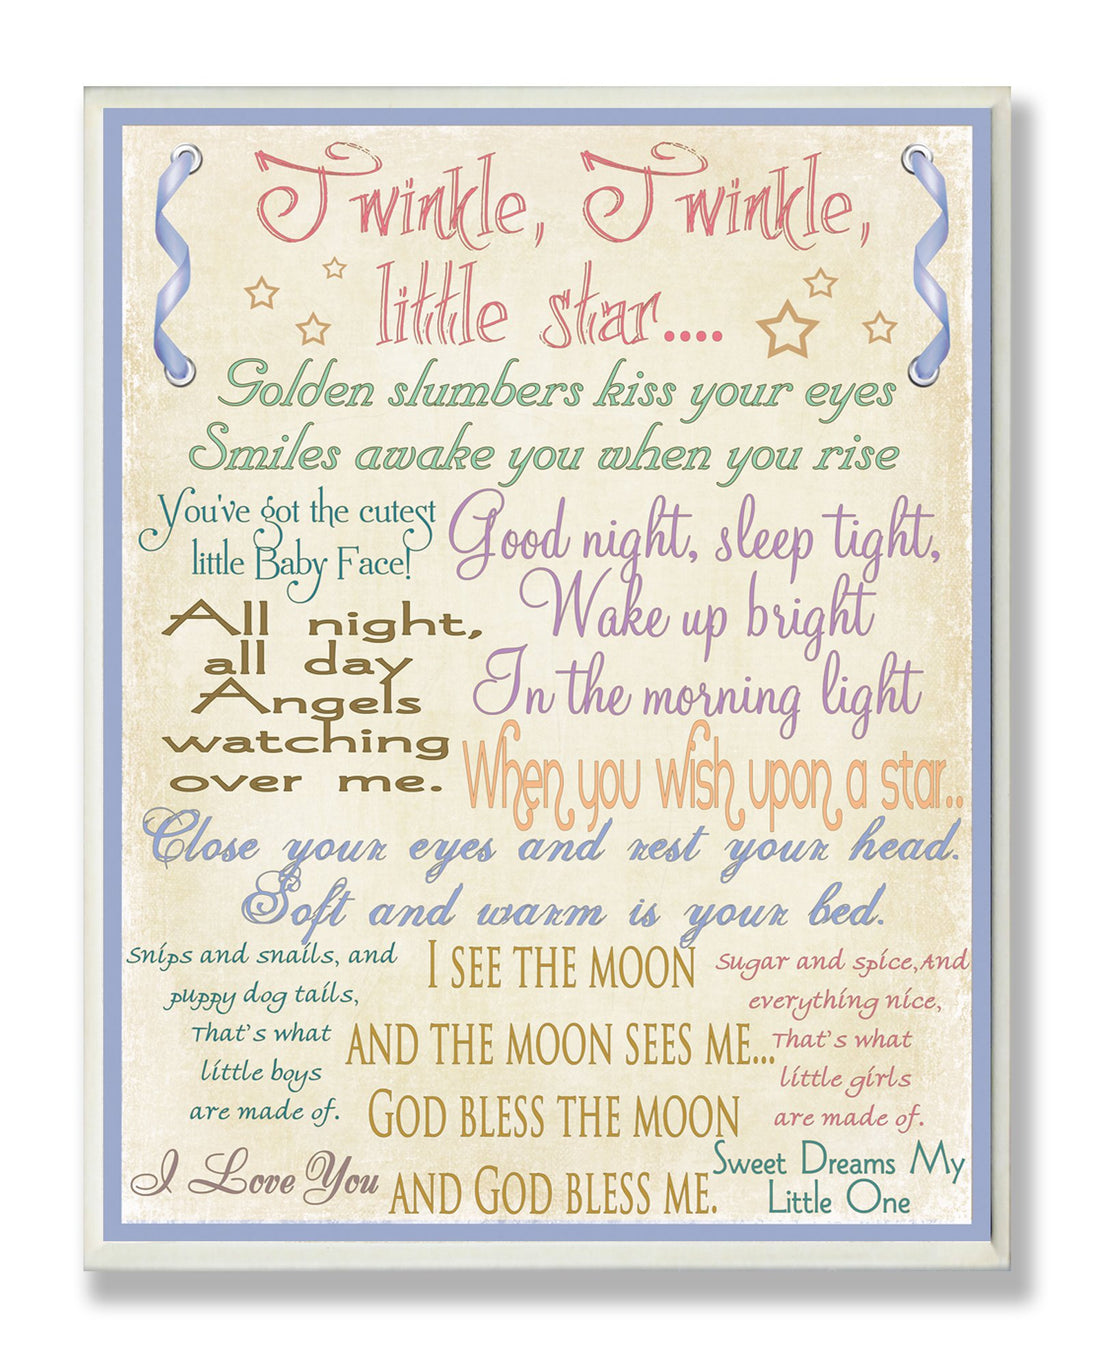 Twinkle, Twinkle,
little star....
Golden slumbers kiss your eyes
Smiles awake you when you rise
You've got the cutest
little Baby Face!
Good night, sleep tight,
Wake up bright
In the morning light
All night,
all day
Angels
watching
over me.
When you wish upon a star..
Close your eyes and rest your head.
Soft and warm is your bed.
Snips and snails, and
puppy dog tails,
That's what
little boys
are made of.
I SEE THE MOON
AND THE MOON SEES ME...
GOD BLESS THE MOON
AND GOD BLESS ME.
Sugar and spice,And
everything nice,
That's what
little girls
are made of.
I Love You
Sweet Dreams My
Little One